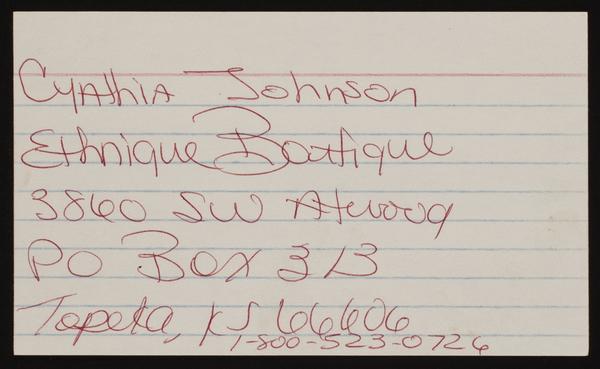 Cynthia Johnson
Ethnique Boutique
3860 SW Atwood
PO Box 313
Topeka, KS 66606
1-800-523-0726